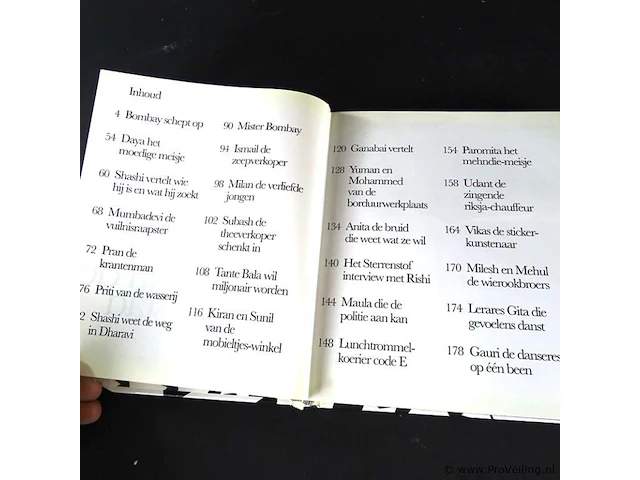 Inhoud
4 Bombay schept op
54 Daya het
moedige meisje
60 Shashi vertelt wie
hij is en wat hij zoekt
68 Mumbadevi de
vuilnisraapster
72 Pran de
krantenman
76 Priti van de wasserij
2 Shashi weet de weg
in Dharavi
90 Mister Bombay
94 Ismail de
zeepverkoper
98 Milan de verliefde
jongen
102 Subash de
theeverkoper
schenkt in
108 Tante Bala wil
miljonair worden
116 Kiran en Sunil
van de
mobieltjes-winkel
120 Ganabai vertelt
128 Yuman en
Mohammed
van de
borduurwerkplaats
134 Anita de bruid
die weet wat ze wil
140 Het Sterrenstof
interview met Rishi
144 Maula die de
politie aan kan
148 Lunchtrommel-
koerier code E
154 Paromita het
mehndie-meisje
158 Udant de
zingende
riksja-chauffeur
164 Vikas de sticker-
kunstenaar
170 Milesh en Mehul
de wierookbroers
174 Lerares Gita die
gevoelens danst
178 Gauri de danseres
op één been
© www.ProVeiling.nl